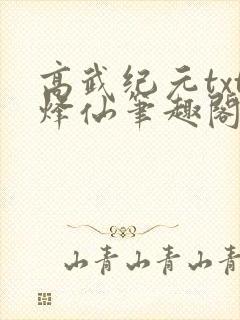 高武纪元txt
烽仙笔趣阁
山青山青山青